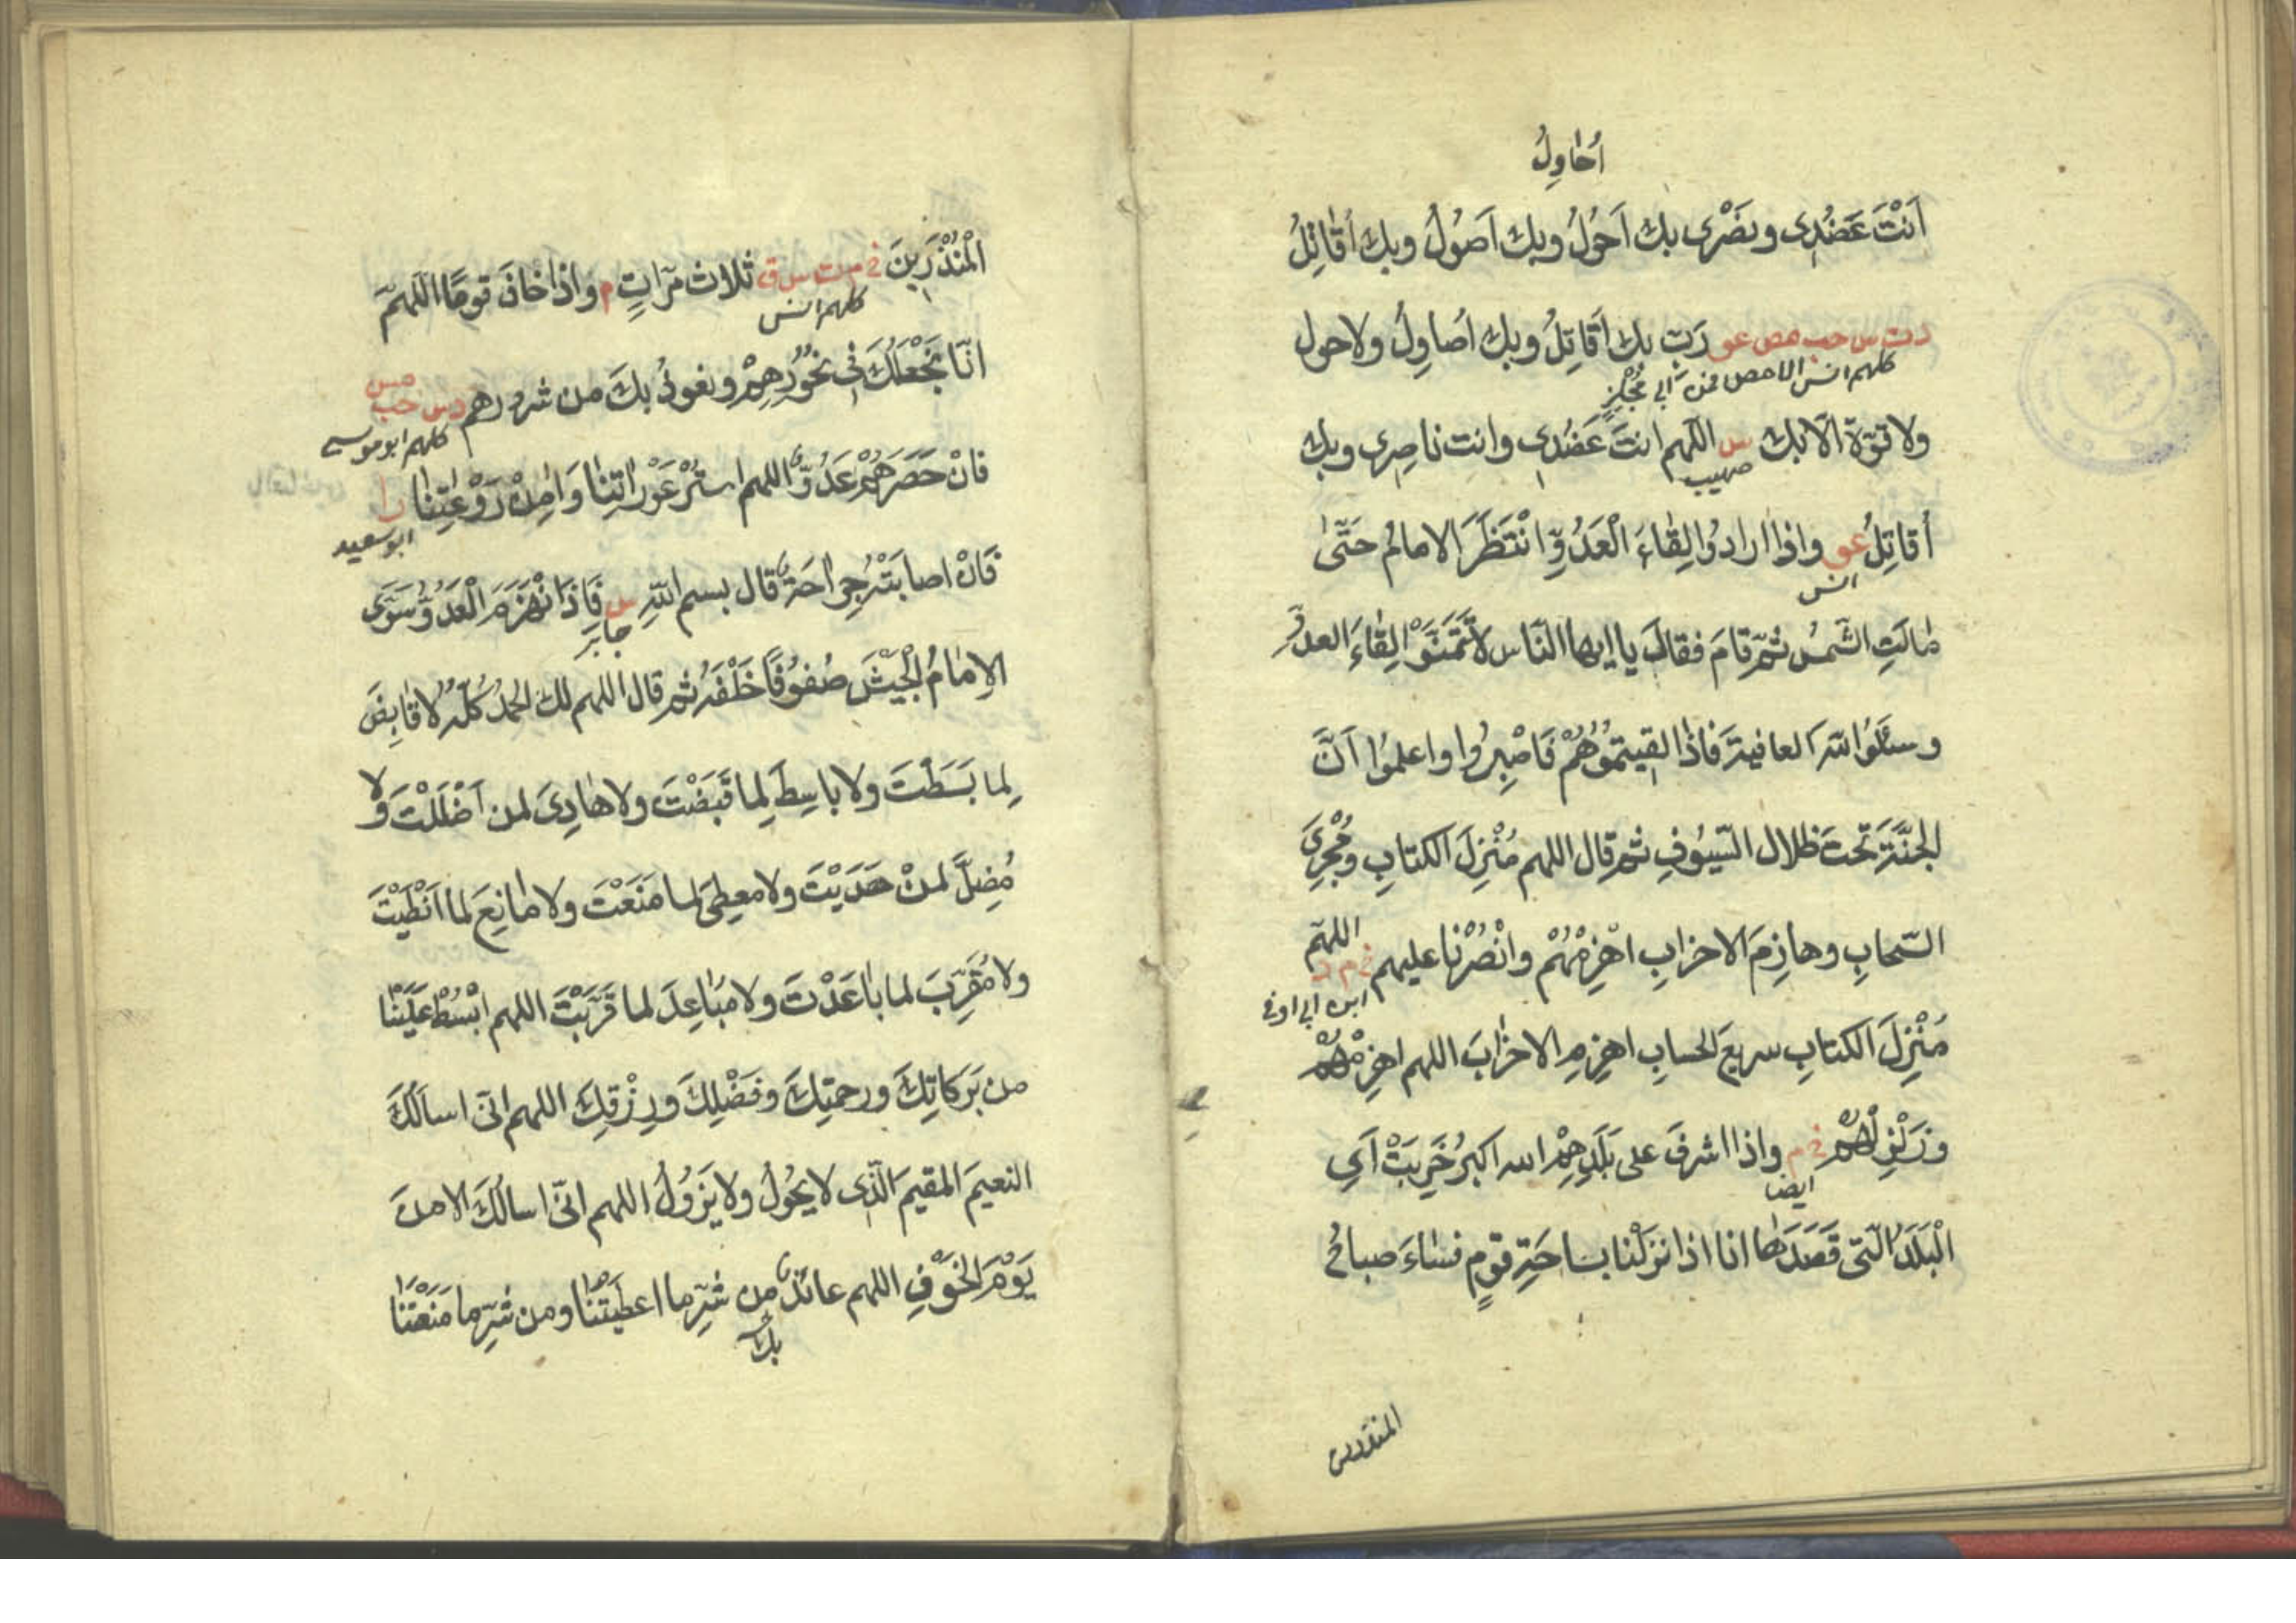 أُحَاوِلُ
اَنْتَ عَضُدِى ونَصْرِى بك اَحُولُ وبك اَصُولُ وبك اُقَاتِلُ
دت س حب مص عو رَبّ بك اُقَاتِلُ وبك اُصاوِلُ ولا حول
كلهم انس الا مص فمن ابي مِجْلَزٍ
ولا قوّة الّا بك س اللّهم انتَ عَضُدِى وانت ناصِرِى وبك
صهيب
أُقاتِلُ عو واذا ارادُوا لِقاءَ الْعَدُوِّ انْتَظَرَ الامامُ حَتّٰى
انس
مالَتِ الشّمسُ ثمّ قامَ فقالَ يا ايها النّاس لا تَتَمَنَّوْا لِقاءَ العدوّ
وسئلُوا اللّهَ العافيةَ فاذا لقيتمُوهُمْ فَاصْبِرُوا واعلمُوا اَنَّ
الجنّةَ تحتَ ظلال السّيُوفِ ثم قال اللهم مُنْزِلَ الكتابِ ومُجْرِىَ
السّحابِ وهازِمَ الاحزابِ اهْزِمْهُمْ وانْصُرْنا عليهم خ م د اللهمّ
ابن ابي اوفى
مُنْزِلَ الكتابِ سريعَ الحسابِ اهزِمِ الاحزابَ اللهم اهزِمْهُمْ
وزَلْزِلْهُمْ خ م واذا اشرفَ على بَلَدِهِمْ الله اكبرُ خَرِبَتْ اَىِ
ايضا
الْبَلَدُ الّتى قَصَدَها انا اذا نزَلْنا بساحَةِ قومٍ فساءَ صباحُ
المنذرين
الْمُنْذَرِينَ خ م ت س ق ثلاث مرّاتٍ م واذا خافَ قومًا اللّهمّ
كلهم انس
انّا نَجْعَلُكَ فى نُحُورِهِمْ ونعوذُ بكَ من شرورهم دس حب مس
كلهم ابو موسى
فانْ حَصَرَهُمْ عَدُوٌّ اللهم اسْتُرْ عَوْراتِنا وَاٰمِنْ رَوْعَتِنا را
ابو سعيد
فَانْ اصابَتْهُ جِراحَةٌ قال بسم اللّهِ س فَاِذا نْهَزَمَ الْعَدُوُّ سَوَّى
جابر
الاِمامُ الْجَيْشَ صُفُوفًا خَلْفَهُ ثم قال اللهم لك الحمدُ كُلُّهُ لا قابِضَ
لِما بَسَطْتَ ولا باسِطَ لِما قَبَضْتَ ولا هادِىَ لمن اَضْلَلْتَ ولا
مُضِلَّ لمنْ هَدَيْتَ ولا معطِىَ لما مَنَعْتَ ولا مانِعَ لما اَنْطَيْتَ
ولا مُقَرِّبَ لما باعَدْتَ ولا مُباعِدَ لما قَرَّبْتَ اللهم ابْسُطْ عَلَيْنا
من بَرَكاتِكَ ورحمتِكَ وفَضْلِكَ ورِزْقِكَ اللهم انّى اسألُكَ
النعيمَ المقيمَ الّذِى لا يَحُولُ ولا يَزُولُ اللهم انّى اسالُكَ الامنَ
يَوْمَ الخَوْفِ اللهم عائذٌ من شرِّ ما اعطَيْتَنا ومن شرِّ ما مَنَعْتَنا
بك